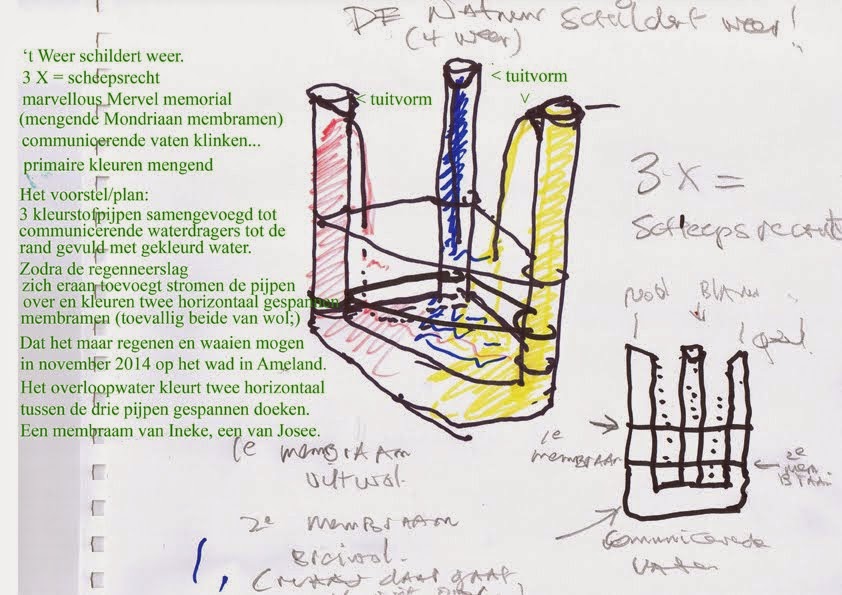 DE Natuur schildert weer!
(4 weer)
‘t Weer schildert weer.
3 X = scheepsrecht
marvellous Mervel memorial
(mengende Mondriaan membramen)
communicerende vaten klinken...
primaire kleuren mengend
Het voorstel/plan:
3 kleurstofpijpen samengevoegd tot
communicerende waterdragers tot de
rand gevuld met gekleurd water.
Zodra de regenneerslag
zich eraan toevoegt stromen de pijpen
over en kleuren twee horizontaal gespannen
membramen (toevallig beide van wol;)
Dat het maar regenen en waaien mogen
in november 2014 op het wad in Ameland.
Het overloopwater kleurt twee horizontaal
tussen de drie pijpen gespannen doeken.
Een membraam van Ineke, een van Josee.
< tuitvorm
< tuitvorm
v
3 X =
scheepsrecht
rood BLAUW
geel
1e
membraan
2e
mem
BRAAN
communicerende
vaten
1e membraan
viltwol
2e membraan
breiwol